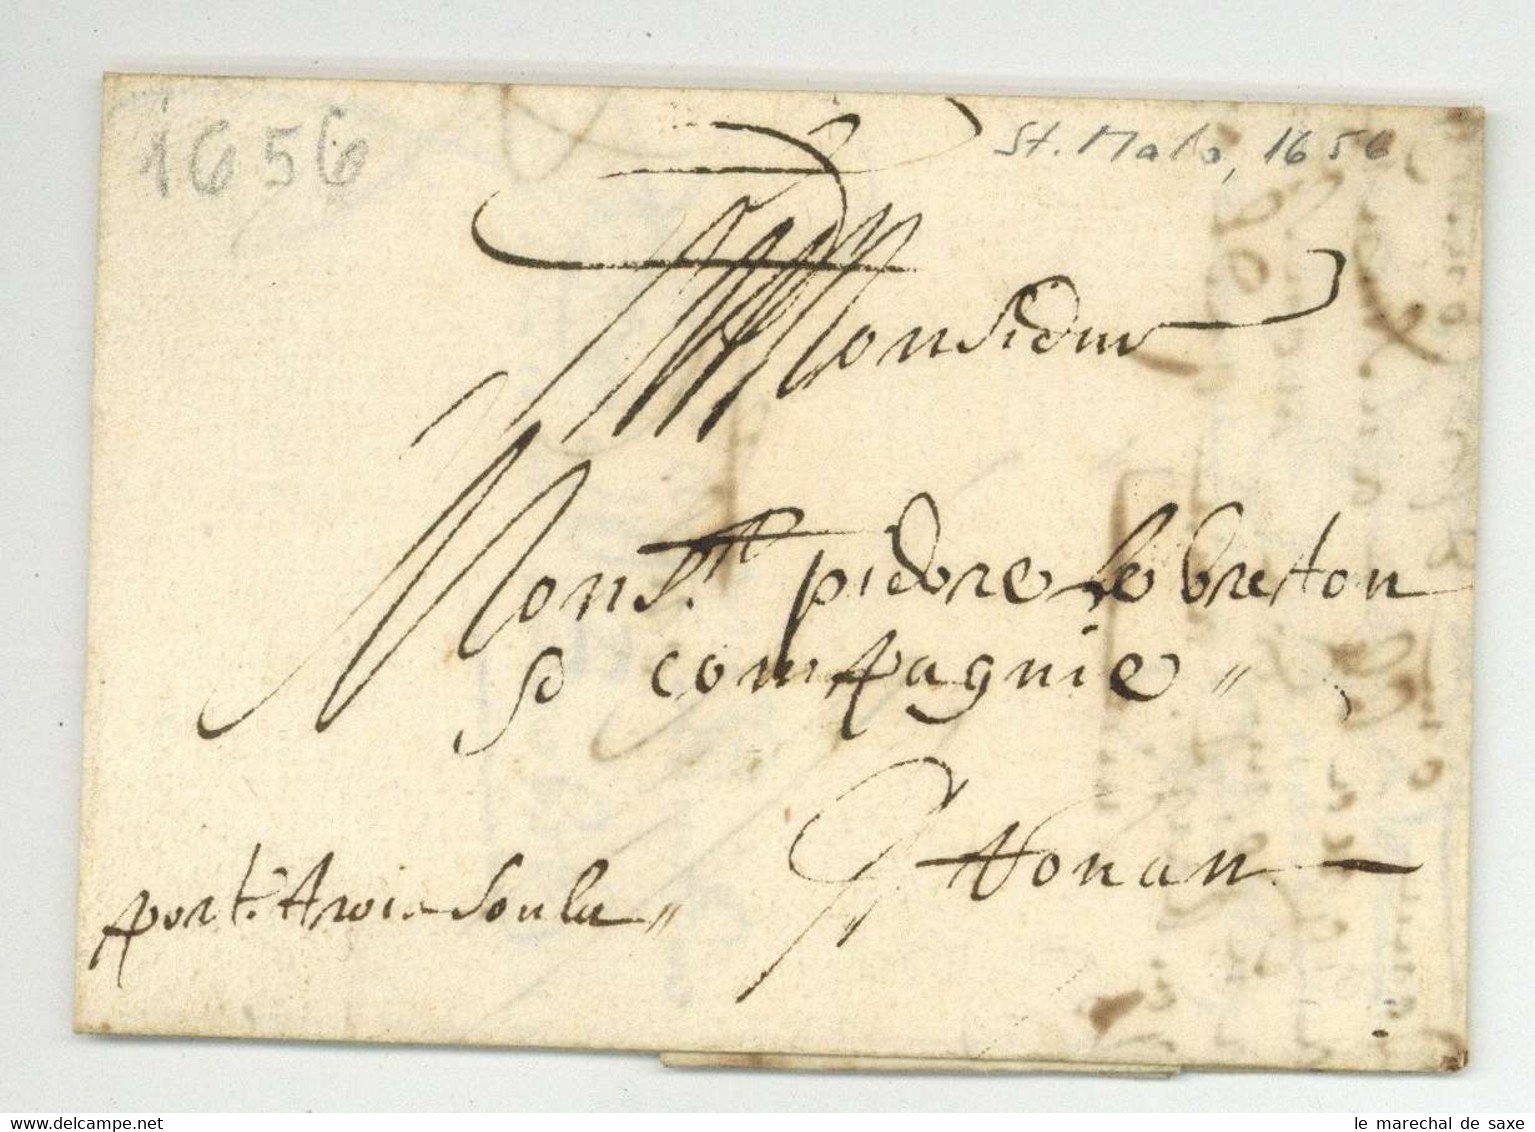 1656
St. Malo, 1656
Monsieur
Monsr. pierre le breton
& compagnie
A Rouan
port. trois soulz
le marechal de saxe